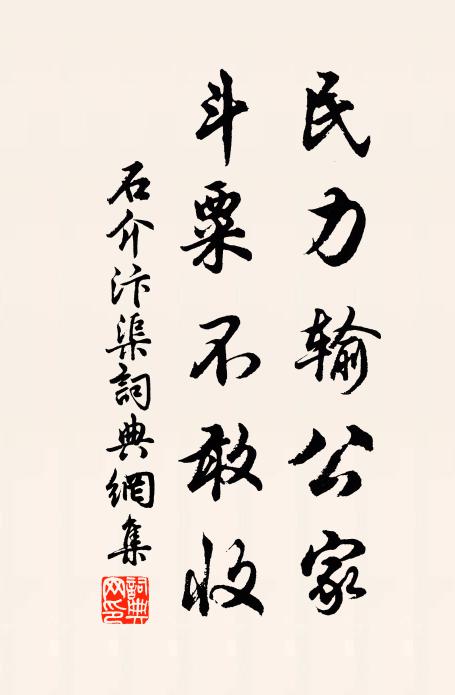 民力输公家
斗粟不敢收
石介汴渠詞典網集
詞典网印